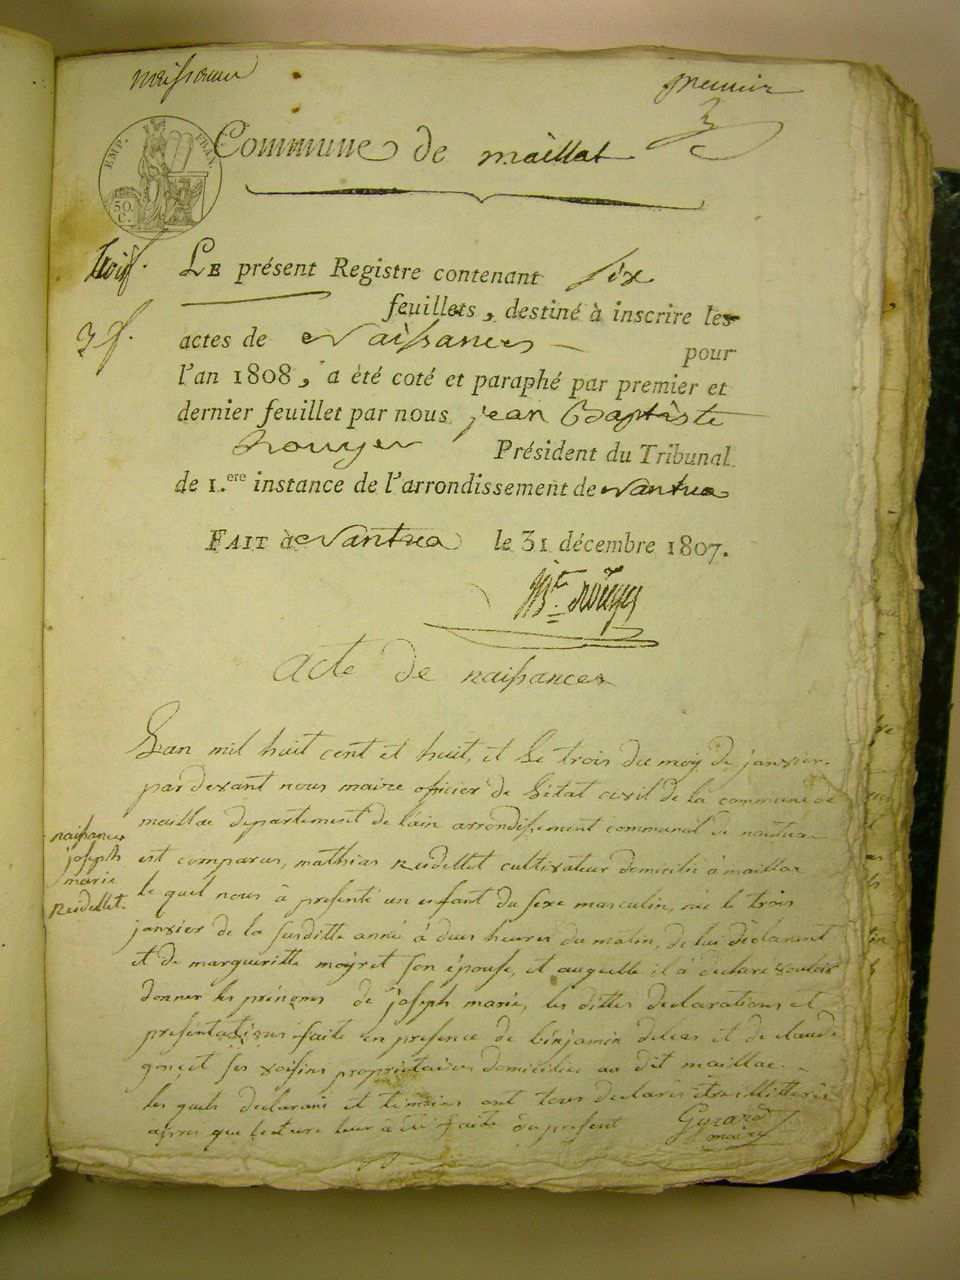 naissance
premier
EMP. FRAN.
50. C.
Commune de maillat
trois.
LE présent Registre contenant six
feuillets, destiné à inscrire les
3 f.
actes de Naissances pour
l'an 1808, a été coté et paraphé par premier et
dernier feuillet par nous jean Baptiste
Rouyer Président du Tribunal
de 1.ere instance de l'arrondissement de Nantua
FAIT à Nantua le 31 décembre 1807.
Bte Rouyer
acte de naissances
L'an mil huit cent et huit, et le trois du moy de janvier
pardevant nous maire officier de l'état civil de la commune de
maillac departement de l'ain arrondissement communal de nantua
est comparus, mathias Reidellet cultivateur domicilié à maillac
naissance
joseph
marie
Reidellet.
le quel nous à presenté un enfant du sexe masculin, née le trois
janvier de la susditte anné à dues heures du matin, de lui déclarant
et de margueritte moyret son épouse, et auquelle il à declaré vouloir
donner les prénoms de joseph marie, les dittes declarations et
presentations faite en presence de bénjamin deleas et de claude
goncet ses voisins propriétaires domiciliés au dit maillac
les quels declarant et témoins ont tous declarés etre illitterés
apres que lecture leur à été faite du present
Gyrard
maire